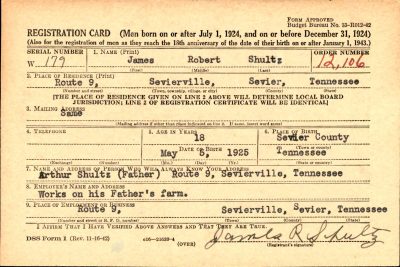 FORM APPROVED
Budget Bureau No. 33-R012-42
REGISTRATION CARD—(Men born on or after July 1, 1924, and on or before December 31, 1924)
(Also for the registration of men as they reach the 18th anniversary of the date of their birth on or after January 1, 1943.)
SERIAL NUMBER 1. NAME (Print) ORDER NUMBER
W 179 James Robert Shultz 12,106
(First) (Middle) (Last)
2. PLACE OF RESIDENCE (Print)
Route 9, Sevierville, Sevier, Tennessee
(Number and street) (Town, township, village, or city) (County) (State)
[THE PLACE OF RESIDENCE GIVEN ON LINE 2 ABOVE WILL DETERMINE LOCAL BOARD
JURISDICTION; LINE 2 OF REGISTRATION CERTIFICATE WILL BE IDENTICAL]
3. MAILING ADDRESS
Same
(Mailing address if other than place indicated on line 2. If same, insert word same)
4. TELEPHONE 5. AGE IN YEARS 6. PLACE OF BIRTH
18 Sevier County
DATE OF BIRTH
May 5, 1925 Tennessee
(Exchange) (Number) (Mo.) (Day) (Yr.) (State or country)
7. NAME AND ADDRESS OF PERSON WHO WILL ALWAYS KNOW YOUR ADDRESS
Arthur Shultz (Father) Route 9, Sevierville, Tennessee
8. EMPLOYER'S NAME AND ADDRESS
Works on his Father's farm.
9. PLACE OF EMPLOYMENT OR BUSINESS
Route 9, Sevierville, Sevier, Tennessee
(Number and street or R. F. D. number) (Town) (County) (State)
I AFFIRM THAT I HAVE VERIFIED ABOVE ANSWERS AND THAT THEY ARE TRUE.
DSS Form 1 (Rev. 11-16-42) (OVER) James R Shultz
(Registrant's signature)